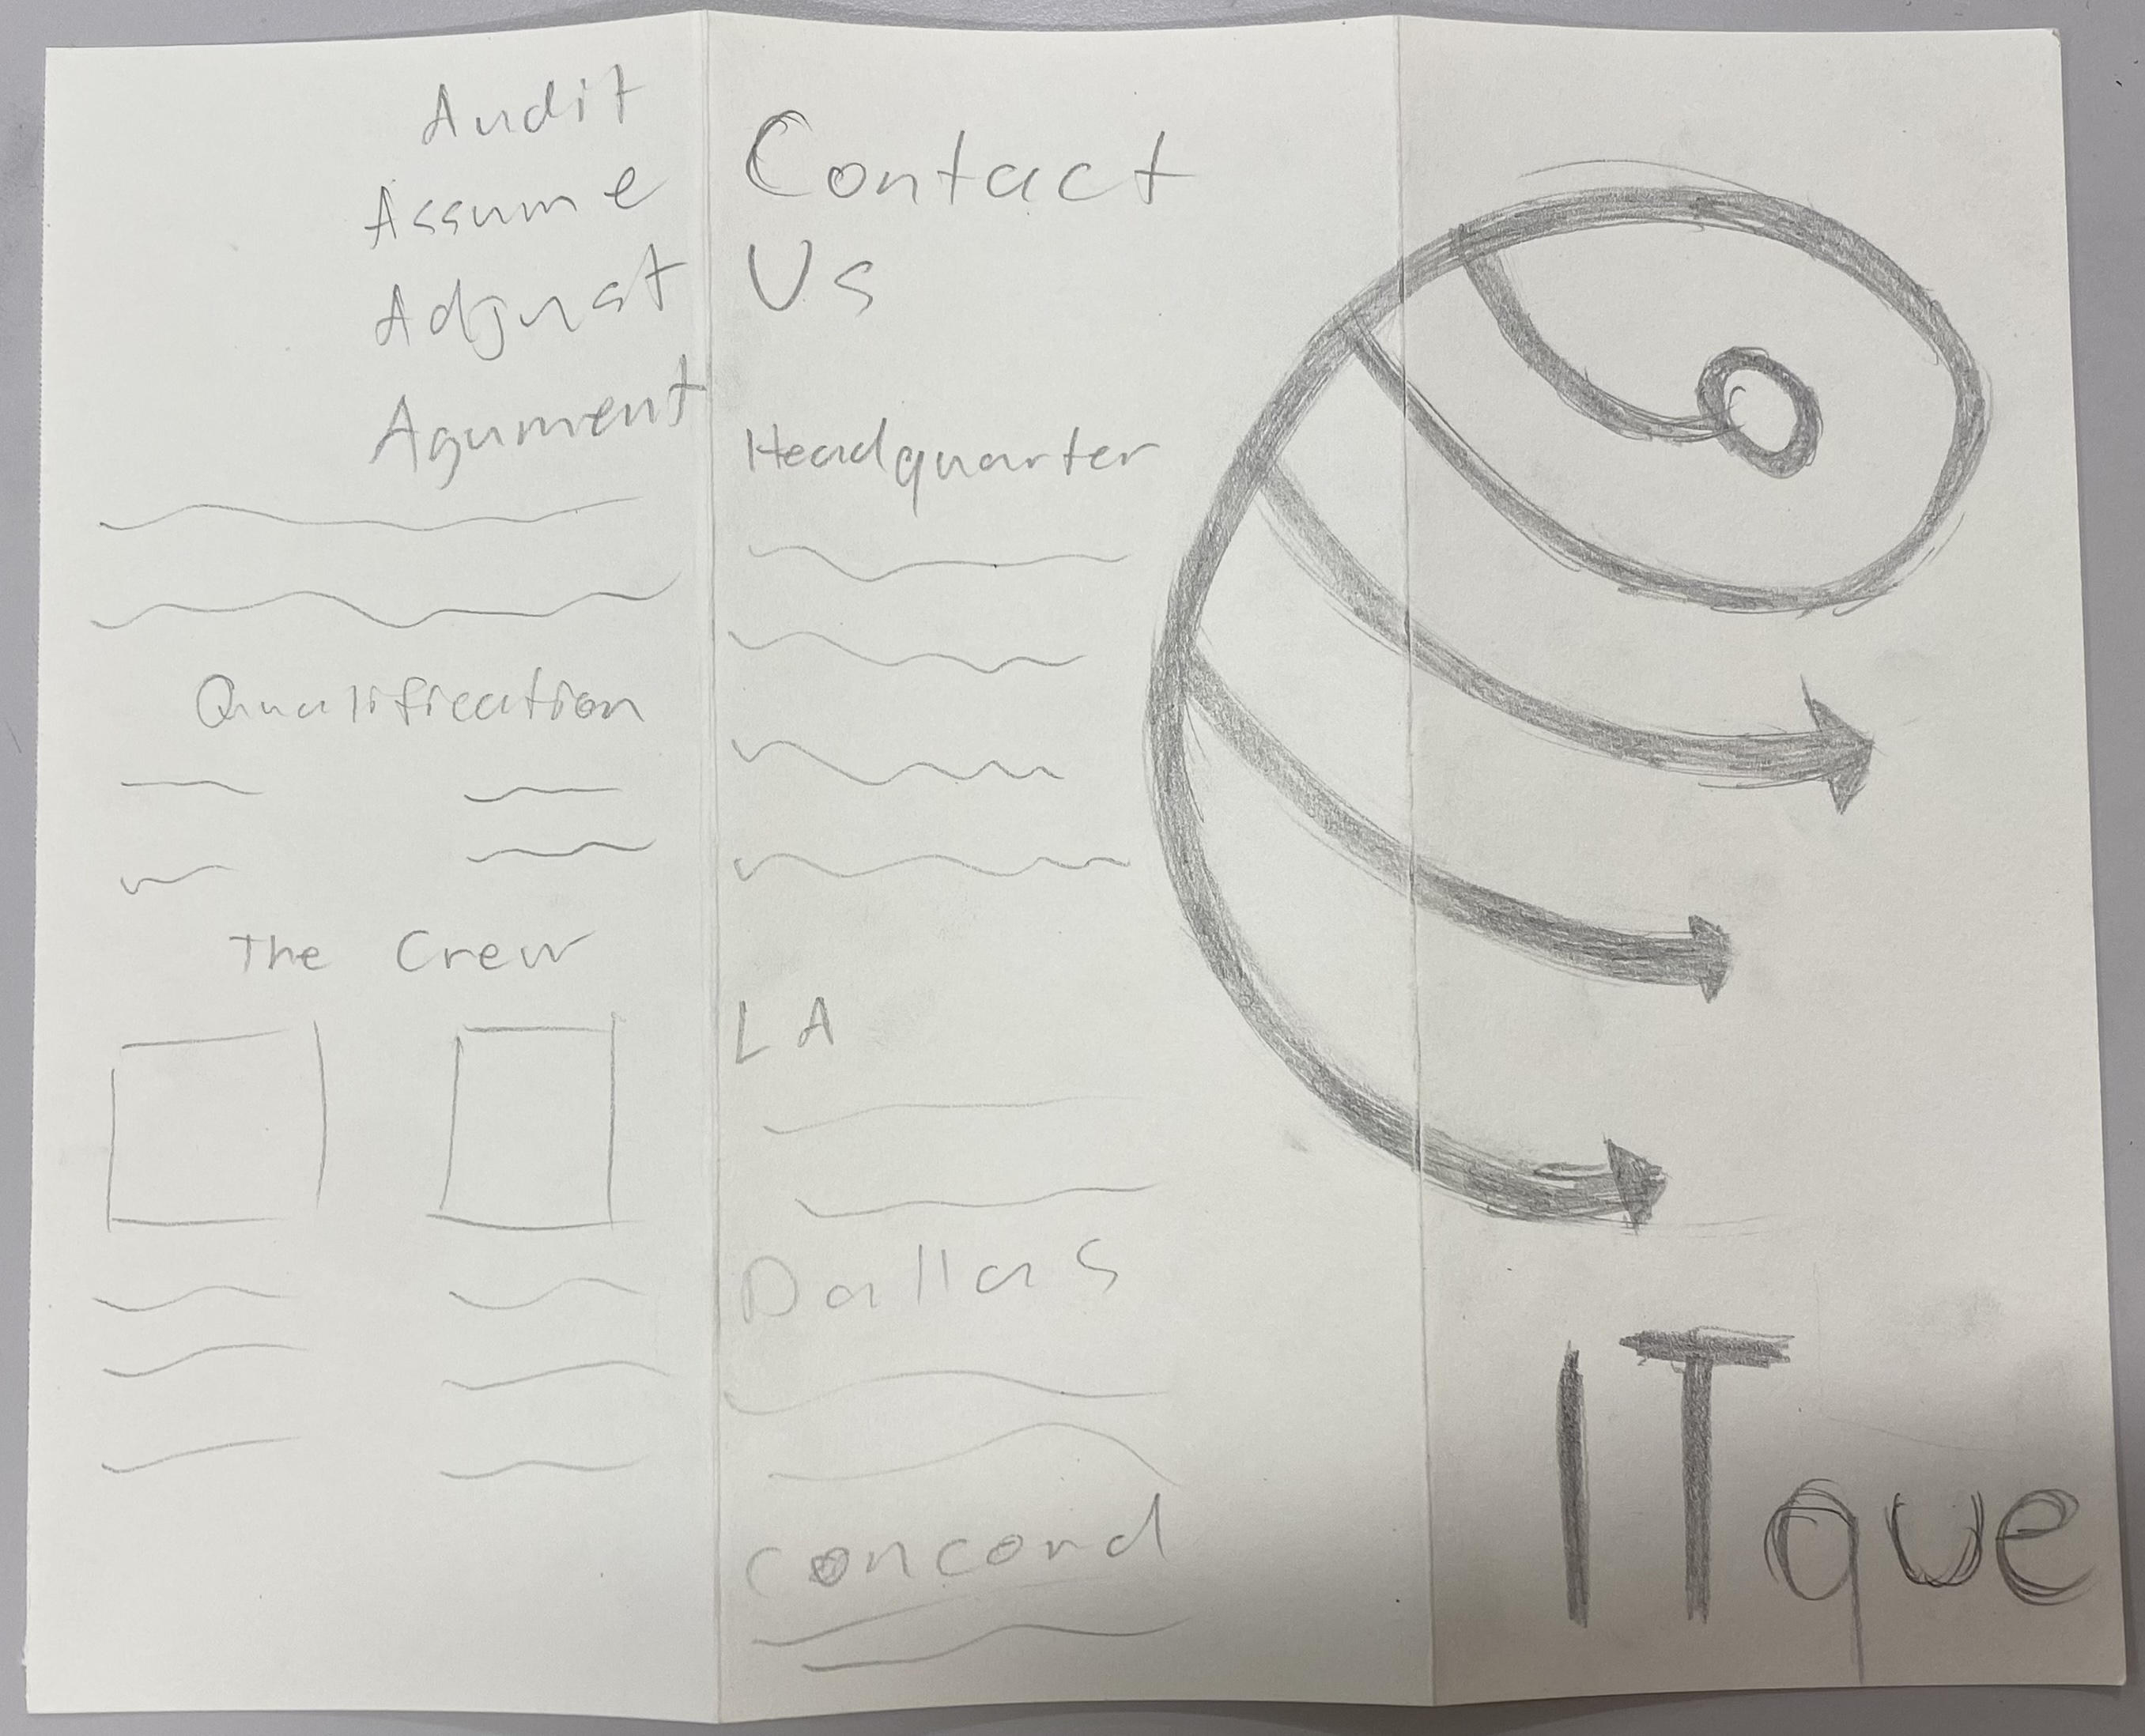 Audit
Assume
Adjust
Agument
Qualification
The Crew
Contact
Us
Headquarter
LA
Dallas
Concord
ITque